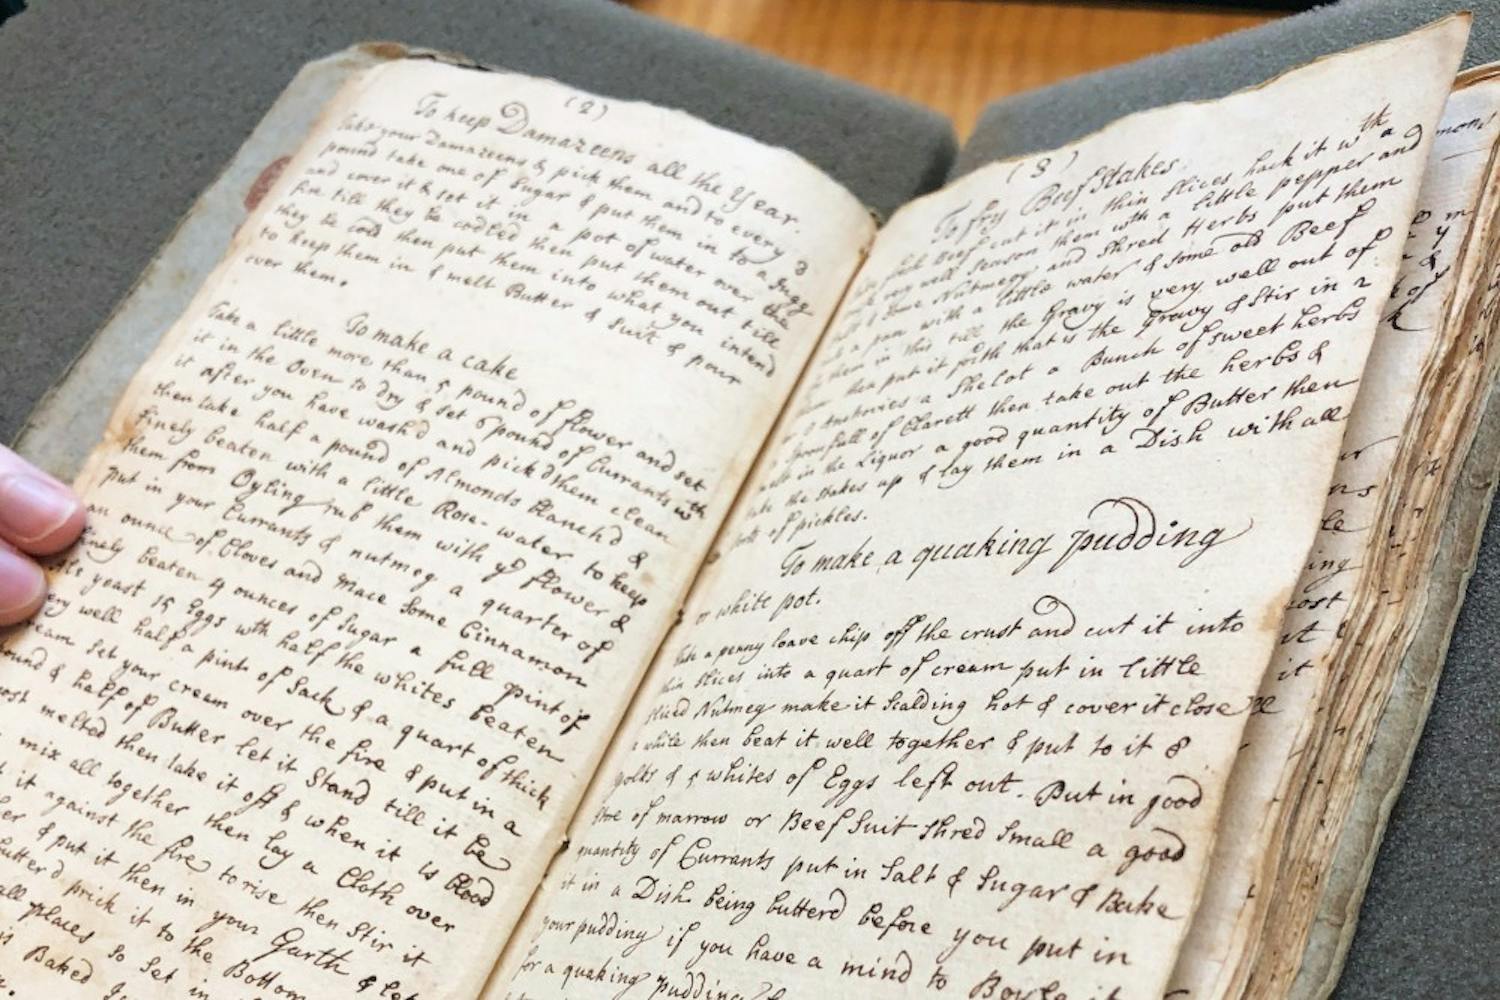 (2)
To keep Damazeens all the Year.
Take your Damazeens & pick them and to every
pound take one of Sugar & put them in to a Jugg
and cover it & set it in a pot of water over the
fire till they be codled then put them out till
they be cold then put them into what you intend
to keep them in & melt Butter & Suit & pour
over them.
To make a cake
Take a little more than 5 pound of flower and set
it in the Oven to dry & set 6 pound of Currants wth
it after you have wash'd and pick'd them clean
then take half a pound of Almonds blanch'd &
finely beaten with a little Rose-water to keep
them from Oyling rub them with yr flower &
put in your Currants & nutmeg a quarter of
an ounce of Cloves and Mace Some Cinnamon
finely beaten 4 ounces of Sugar a full pint of
Ale yeast 15 Eggs wth half the whites beaten
very well half a pint of Sack & a quart of thick
Cream set your cream over the fire & put in a
pound & half of Butter let it Stand till it be
most melted then take it off & when it is blood
mix all together then lay a Cloth over
it against the fire to rise then Stir it
& put it then in your Garth & let
butter'd prick it to the Bottom
all places So Set in
Baked
(3)
To fry Beef Stakes.
Beef cut it in thin Slices hack it wth a
very well Season them with a little pepper and
Some Nutmeg and Shred Herbs put them
a pan with a little water & Some old Beef
them in this till the Gravy is very well out of
then put it forth that is the Gravy & Stir in 2
Anchovies a Shelot a Bunch of sweet herbs
Spoonfull of Clarett then take out the herbs &
melt in the Liquor a good quantity of Butter then
take the Stakes up & lay them in a Dish with all
of pickles.
To make a quaking pudding
or white pot.
Take a penny loave chip off the crust and cut it into
thin slices into a quart of cream put in little
sliced Nutmeg make it Scalding hot & cover it close
a while then beat it well together & put to it 8
yolks & 5 whites of Eggs left out. Put in good
of marrow or Beef Suit Shred Small a good
quantity of Currants put in Salt & Sugar & Bake
it in a Dish being butterd before you put in
your pudding if you have a mind to Boyle it
for a quaking pudding